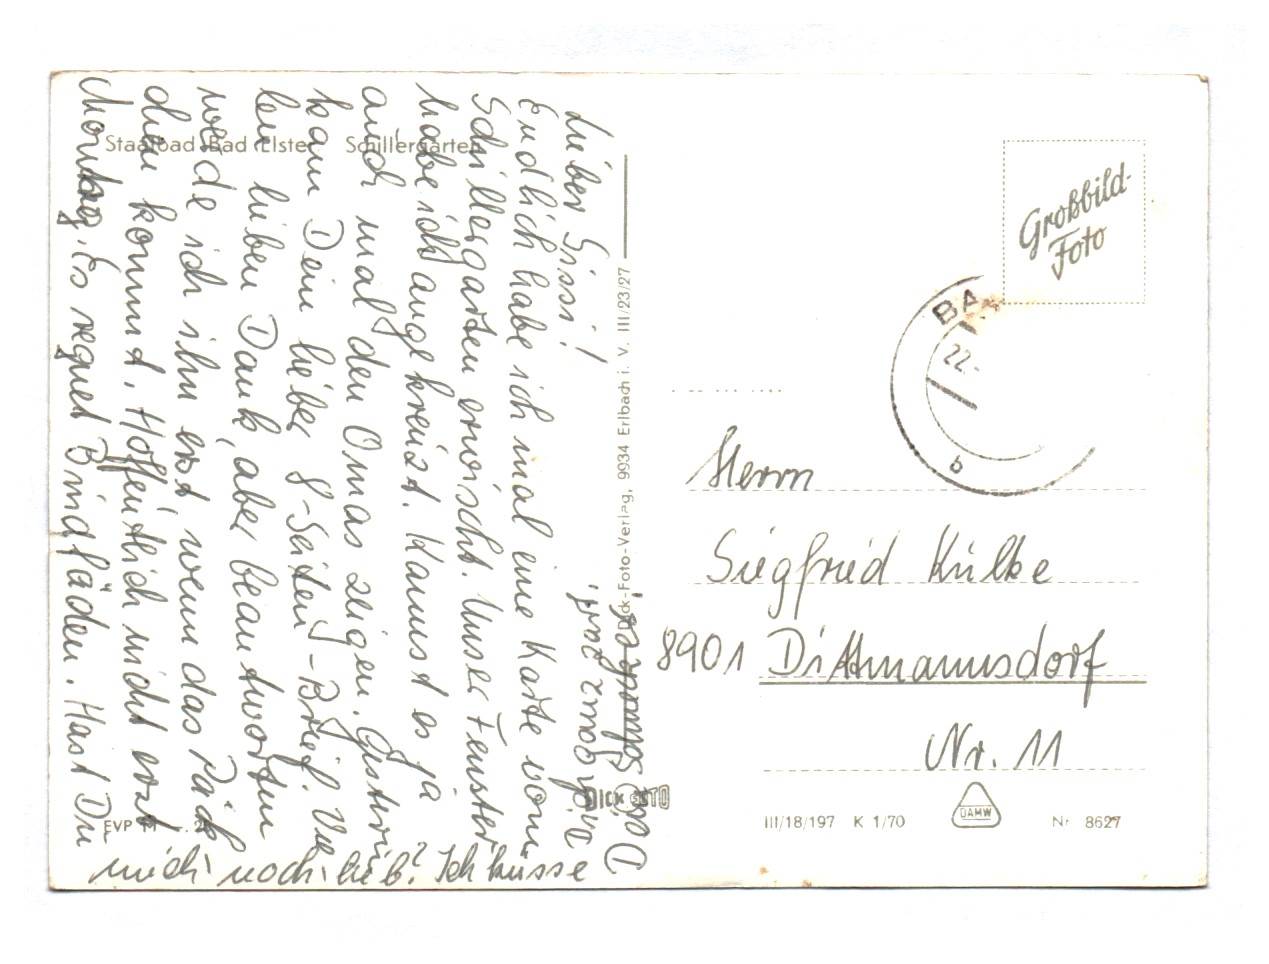 Staatbad Bad Elster Schillergarten
Lieber Sissi!
Endlich habe ich mal eine Karte vom
Schillergarten erwischt. Unser Fenster
habe ich angekreuzt. Kannst es ja
auch mal den Omas zeigen. Gestern
kam Dein lieber 8-Seiten-Brief. Vie
len lieben Dank, aber beantworten
werde ich ihn erst, wenn das Päck
chen kommt. Hoffentlich nicht erst
Montag. Es regnet Bindfäden. Hast Du
mich noch lieb? Ich küsse
Dich ganz zart.
Dein
EVP M
Dick-Foto-Verlag, 9934 Erlbach i. V. III/23/27
DICK FOTO
Großbild-
Foto
BA
22.
b
Herrn
Siegfried Külke
8901 Dittmannsdorf
Nr. 11
III/18/197 K 1/70 DAMW Nr 8627